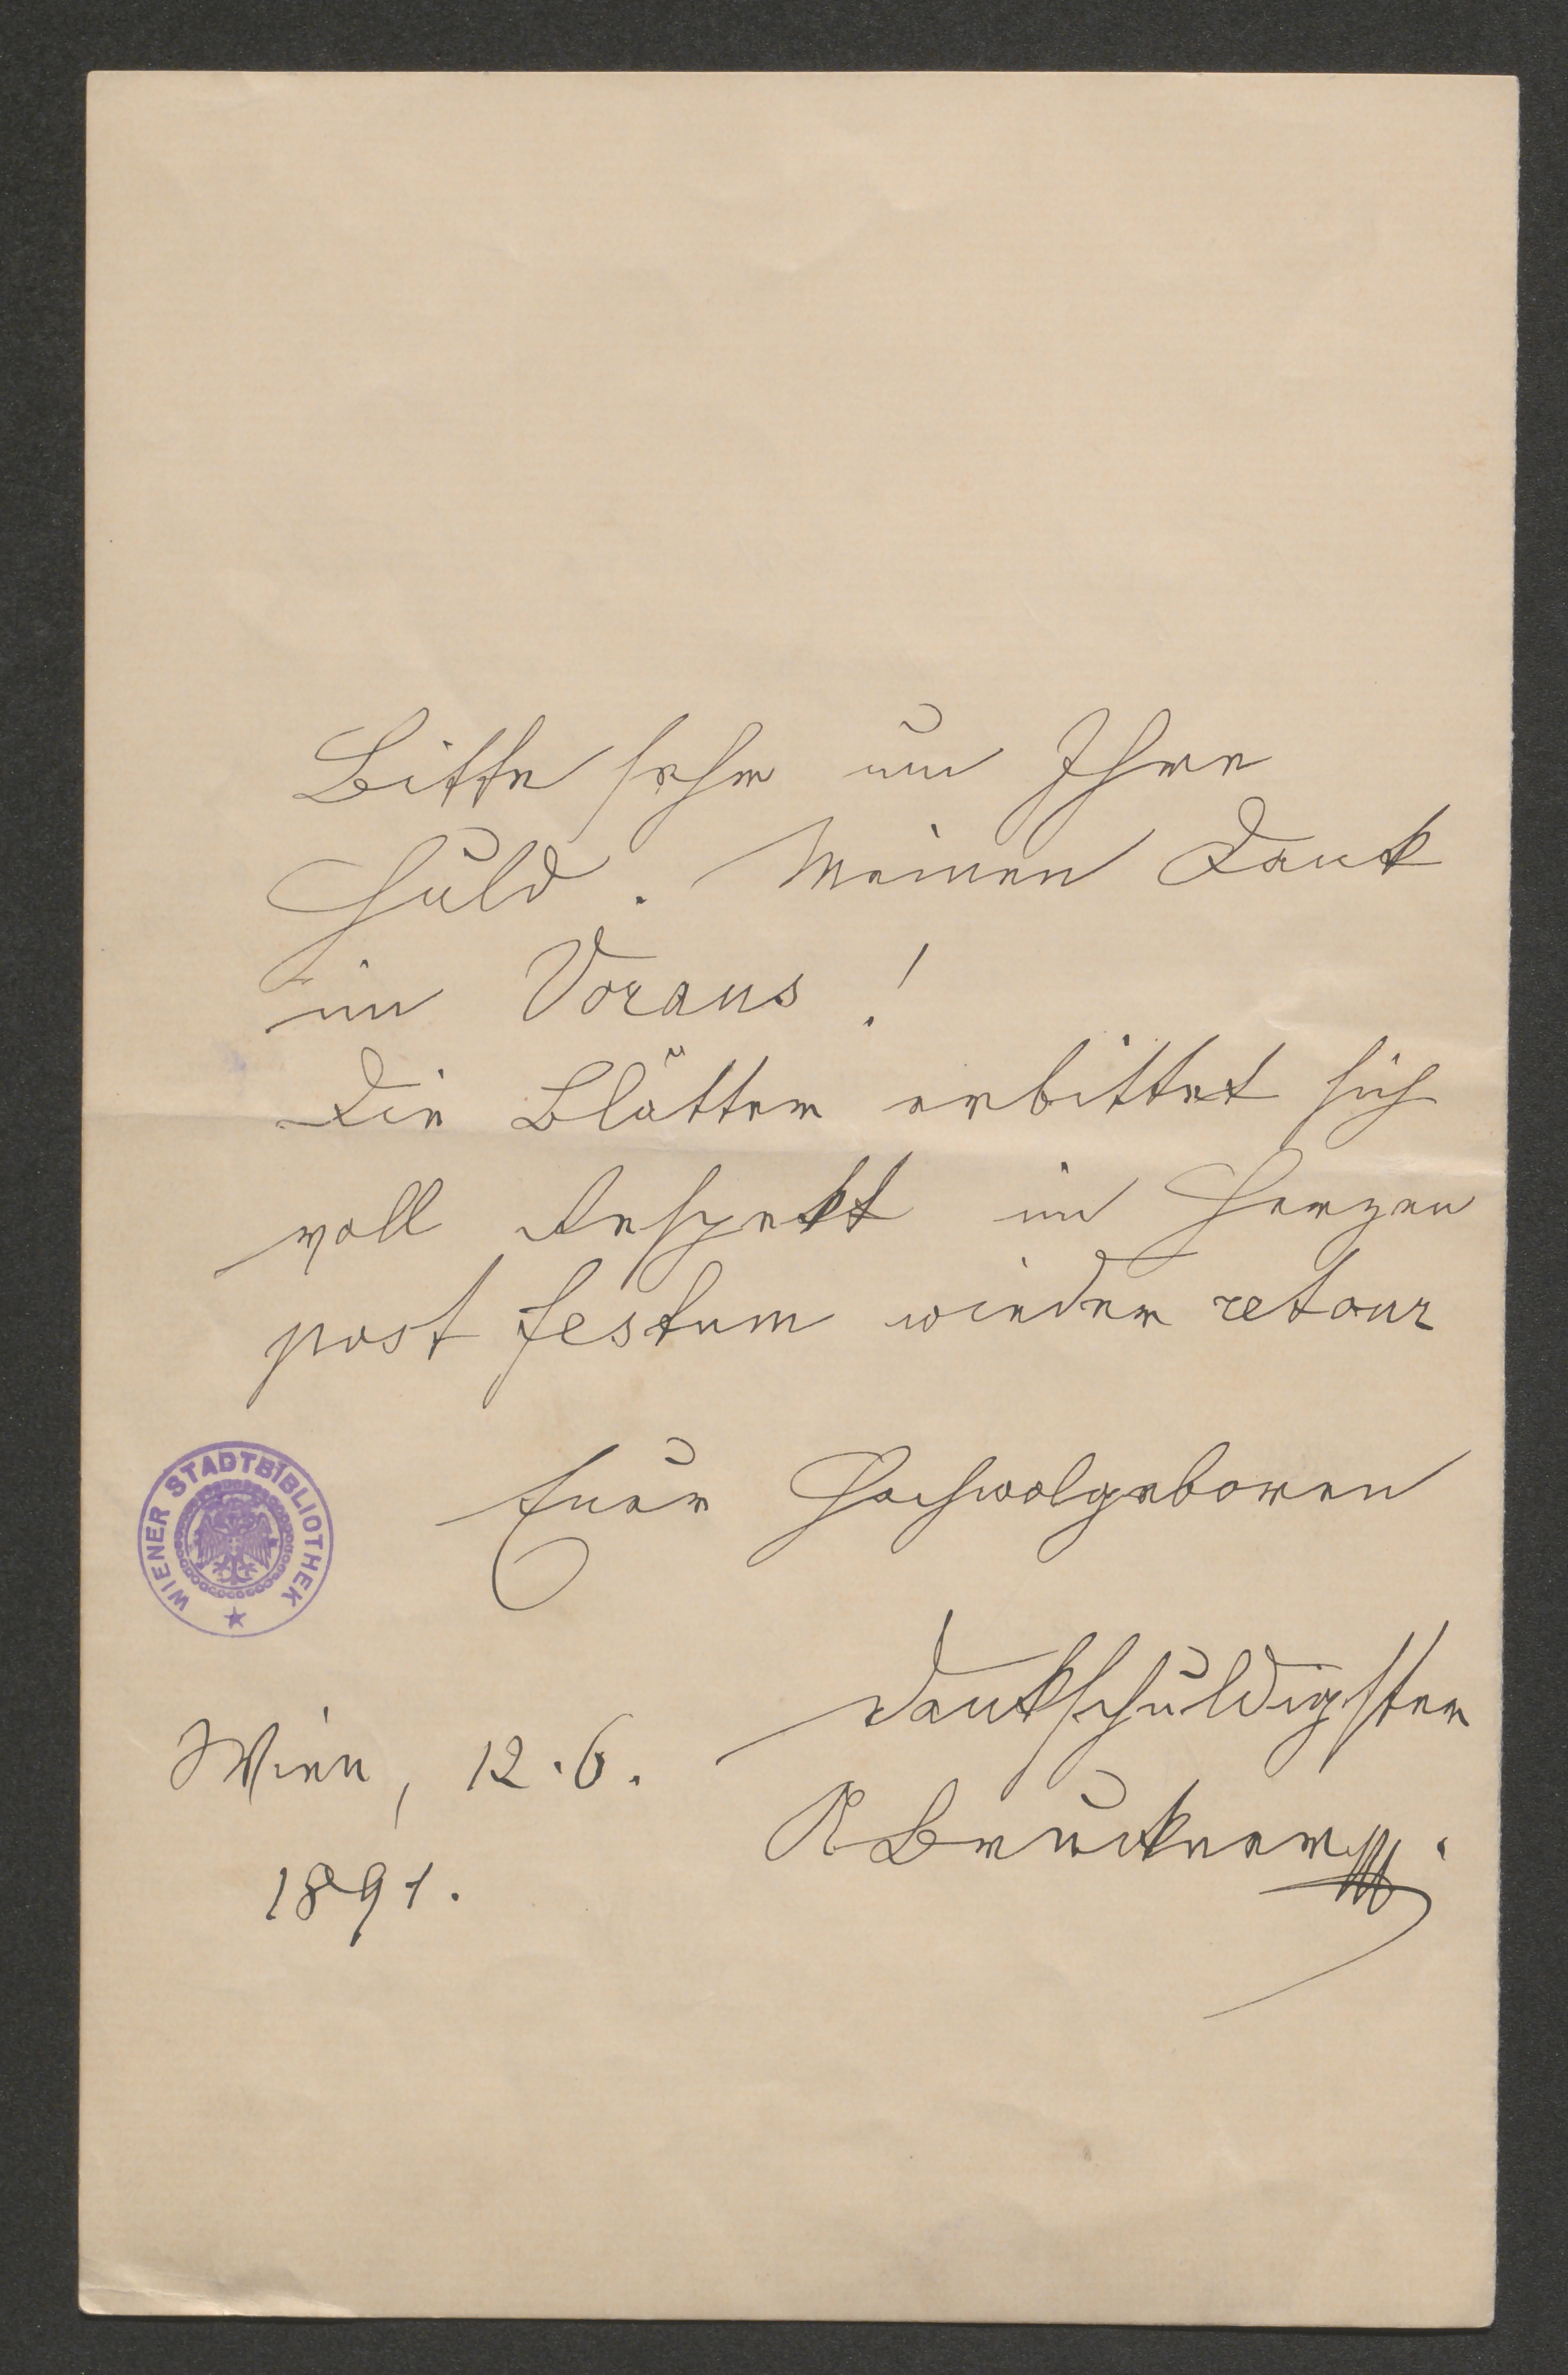 Bitte sehr um Ihre
Huld. Meinen Dank
im Voraus!
Die Blätter erbittet sich
voll Respekt im Herzen
post festum wieder retour
Euer Hochwolgeboren
WIENER STADTBIBLIOTHEK
dankschuldigster
Wien, 12.6.
ABruckner
1891.